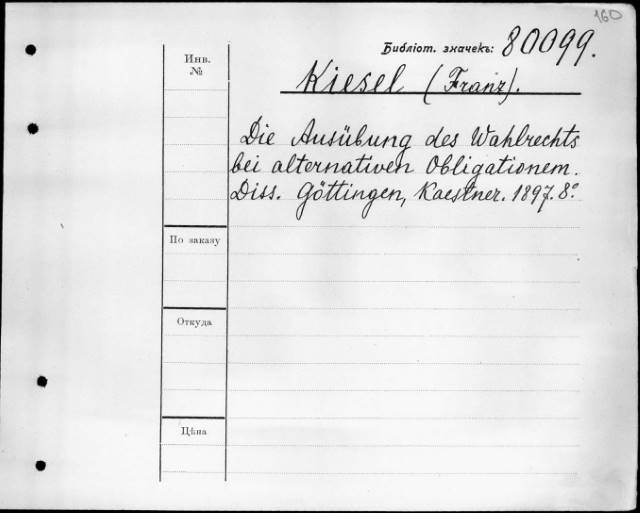 160
Библіот. значекъ: 80099.
Инв.
№
Kiesel (Franz).
Die Ausübung des Wahlrechts
bei alternativen Obligationem.
Diss. Göttingen, Kaestner. 1897. 8º
По заказу
Откуда
Цѣна